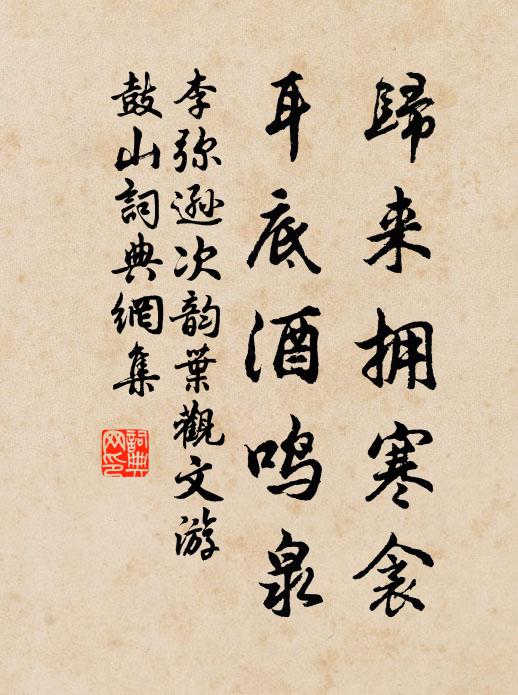 歸来拥寒衾
耳底酒鸣泉
李弥遜次韵葉觀文游
鼓山詞典網集
詞典网印